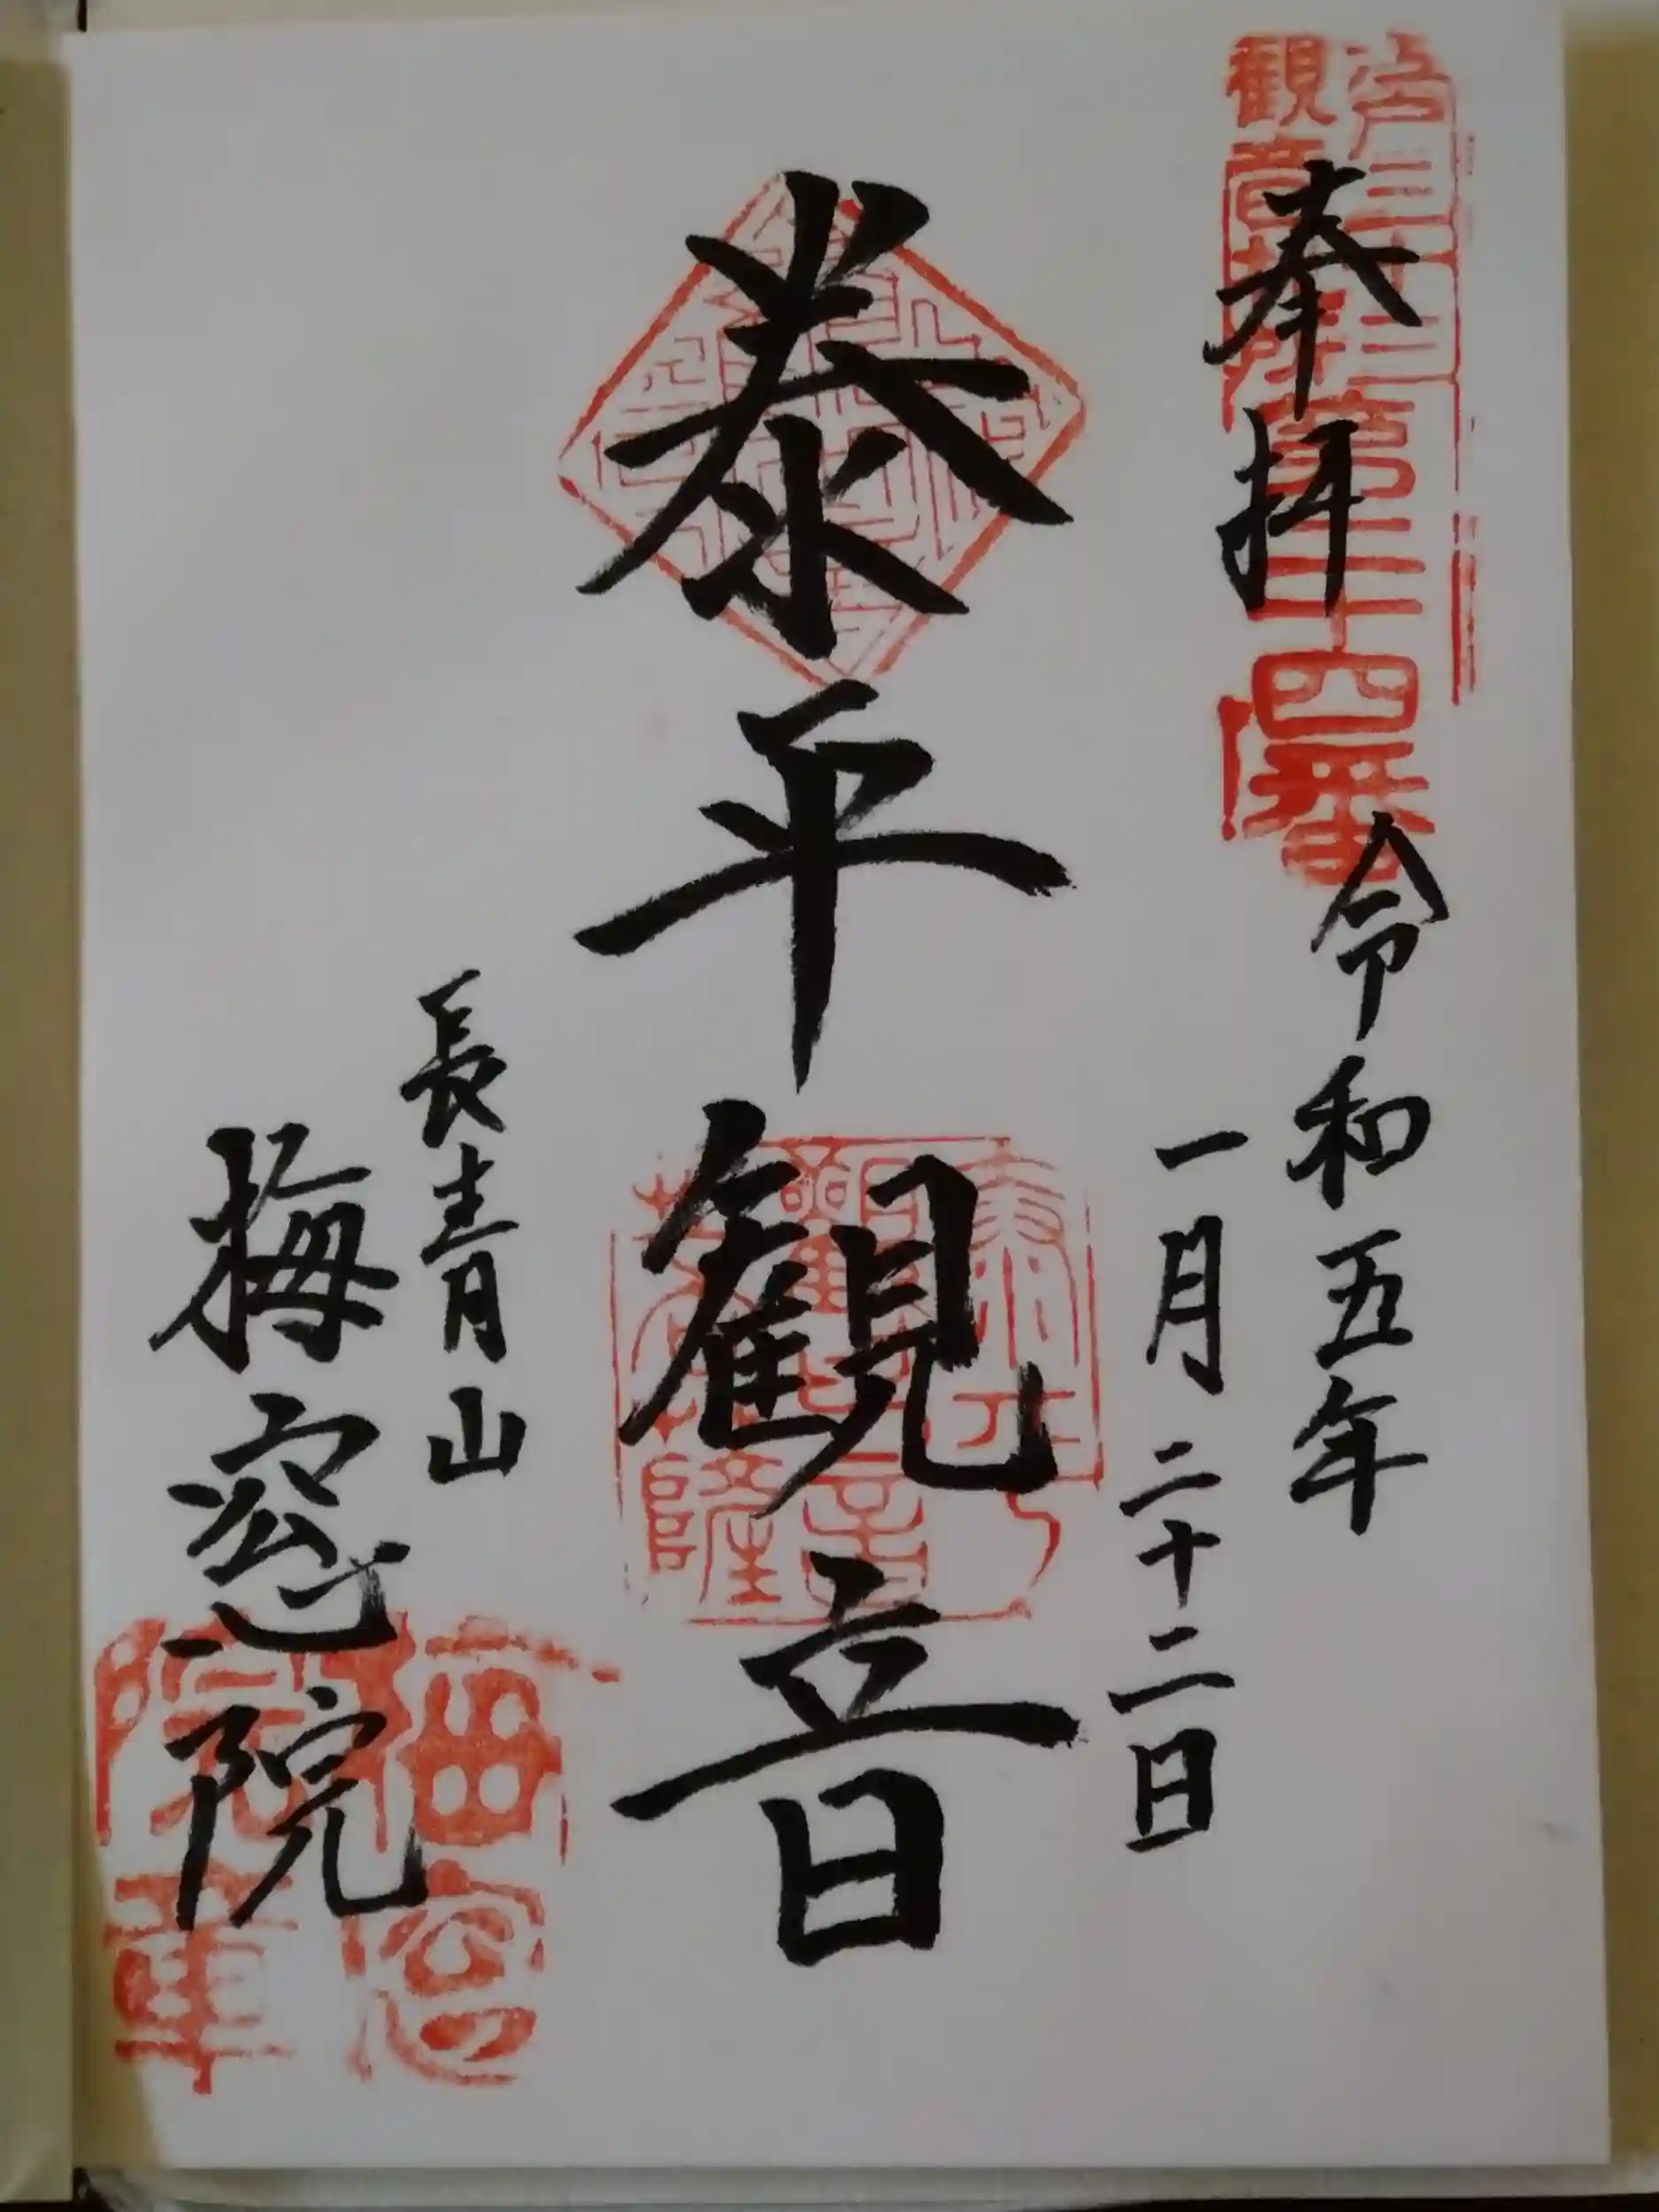 奉拝
令和五年
一月二十二日
江戸三十三
観音札所
第二十四番
泰平観音
長青山
梅窓院